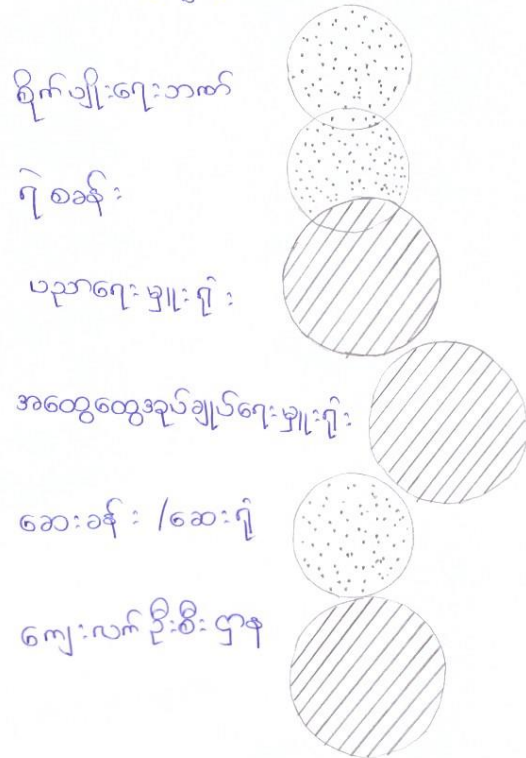 စိုက်ပျိုးရေးဘဏ်
ရဲ စခန်း
ပညာရေးမှူးရုံး
အထွေထွေအုပ်ချုပ်ရေးမှူးရုံး
ဆေးခန်း / ဆေးရုံ
ကျေးလက် ဦးစီးဌာန